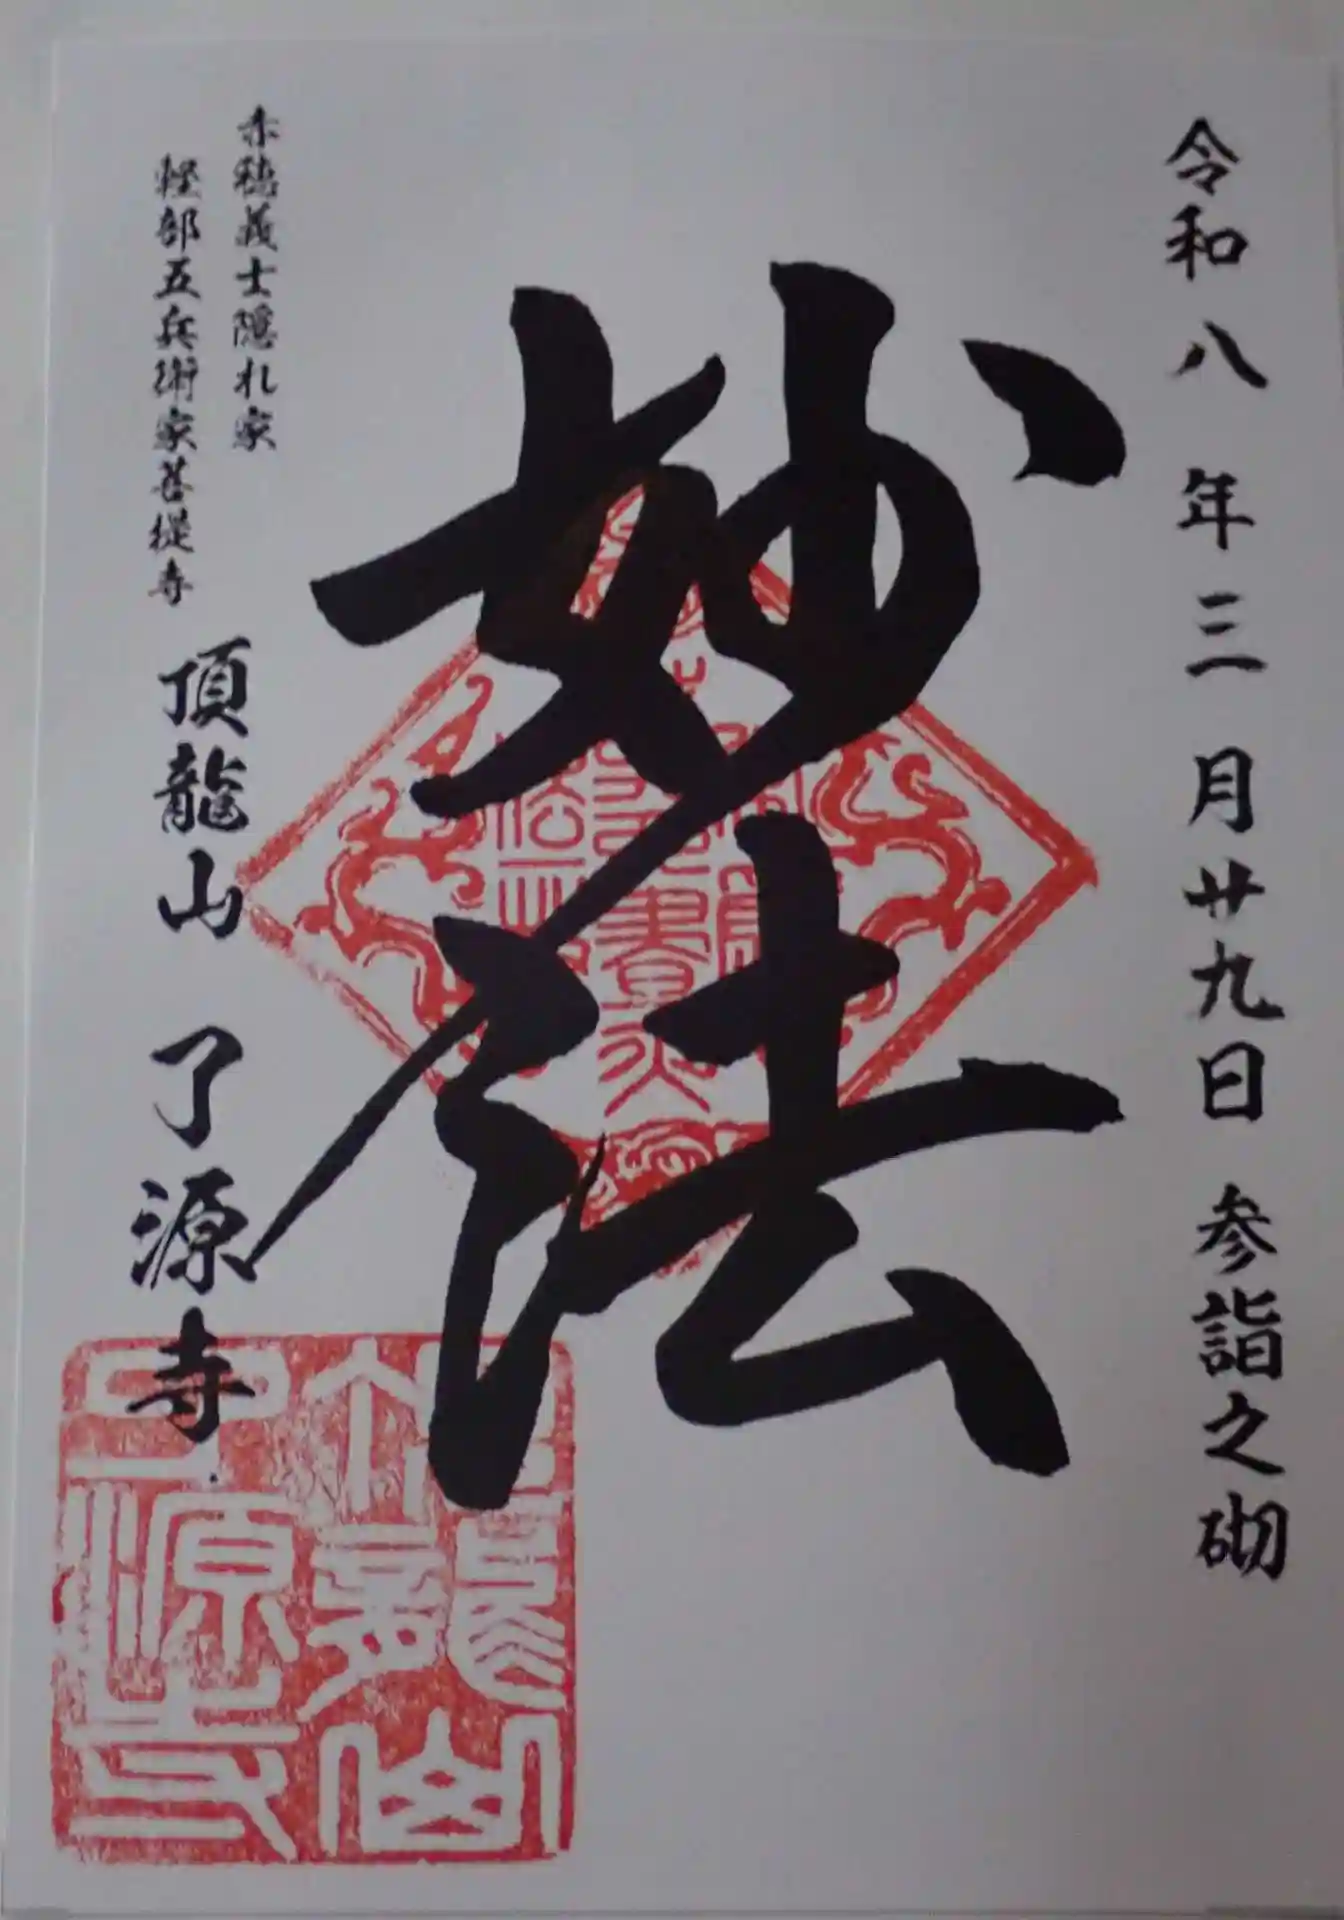 令和八年三月廿九日 参詣之砌
妙法
赤穂義士隠れ家
軽部五兵衛家菩提寺
頂龍山 了源寺